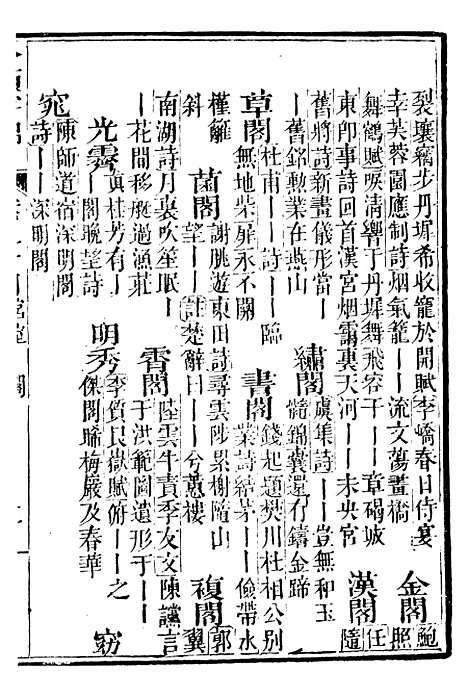 裂壤竊步丹墀希收寵於開賦李嶠春日侍宴
幸芙蓉園應制詩烟氣籠——流文蕩畫橋
金閣
鮑
照
舞鶴賦唳清響于丹墀舞飛容于——章碣城
東卽事詩回首漢宮烟靄裏天河——未央宮
漢閣
任
隨
舊將詩新畫儀形當——
——舊銘勳業在燕山
繡閣
虞集詩——豈無和玉
錦囊還有鑄金蹄
草閣
杜甫——詩——臨
無地柴扉永不關
書閣
錢起題樊川杜相公別
業詩結茅——儉帶水
槿籬
斜
菌閣
謝朓遊東田詩尋雲陟累榭隨山
望——註楚辭曰——兮蕙樓
複閣
郭
翼
南湖詩月裏吹笙眠
——花間移艇過漁莊
霄閣
陸雲牛責季友文陳讜言
于洪範圖遺形于——
光霽
真桂芳有——
——閣晚望詩
明秀
李質艮嶽賦俯——之
傑閣晞梅巖及春華
窈
窕
陳師道宿深明閣
詩——深明閣